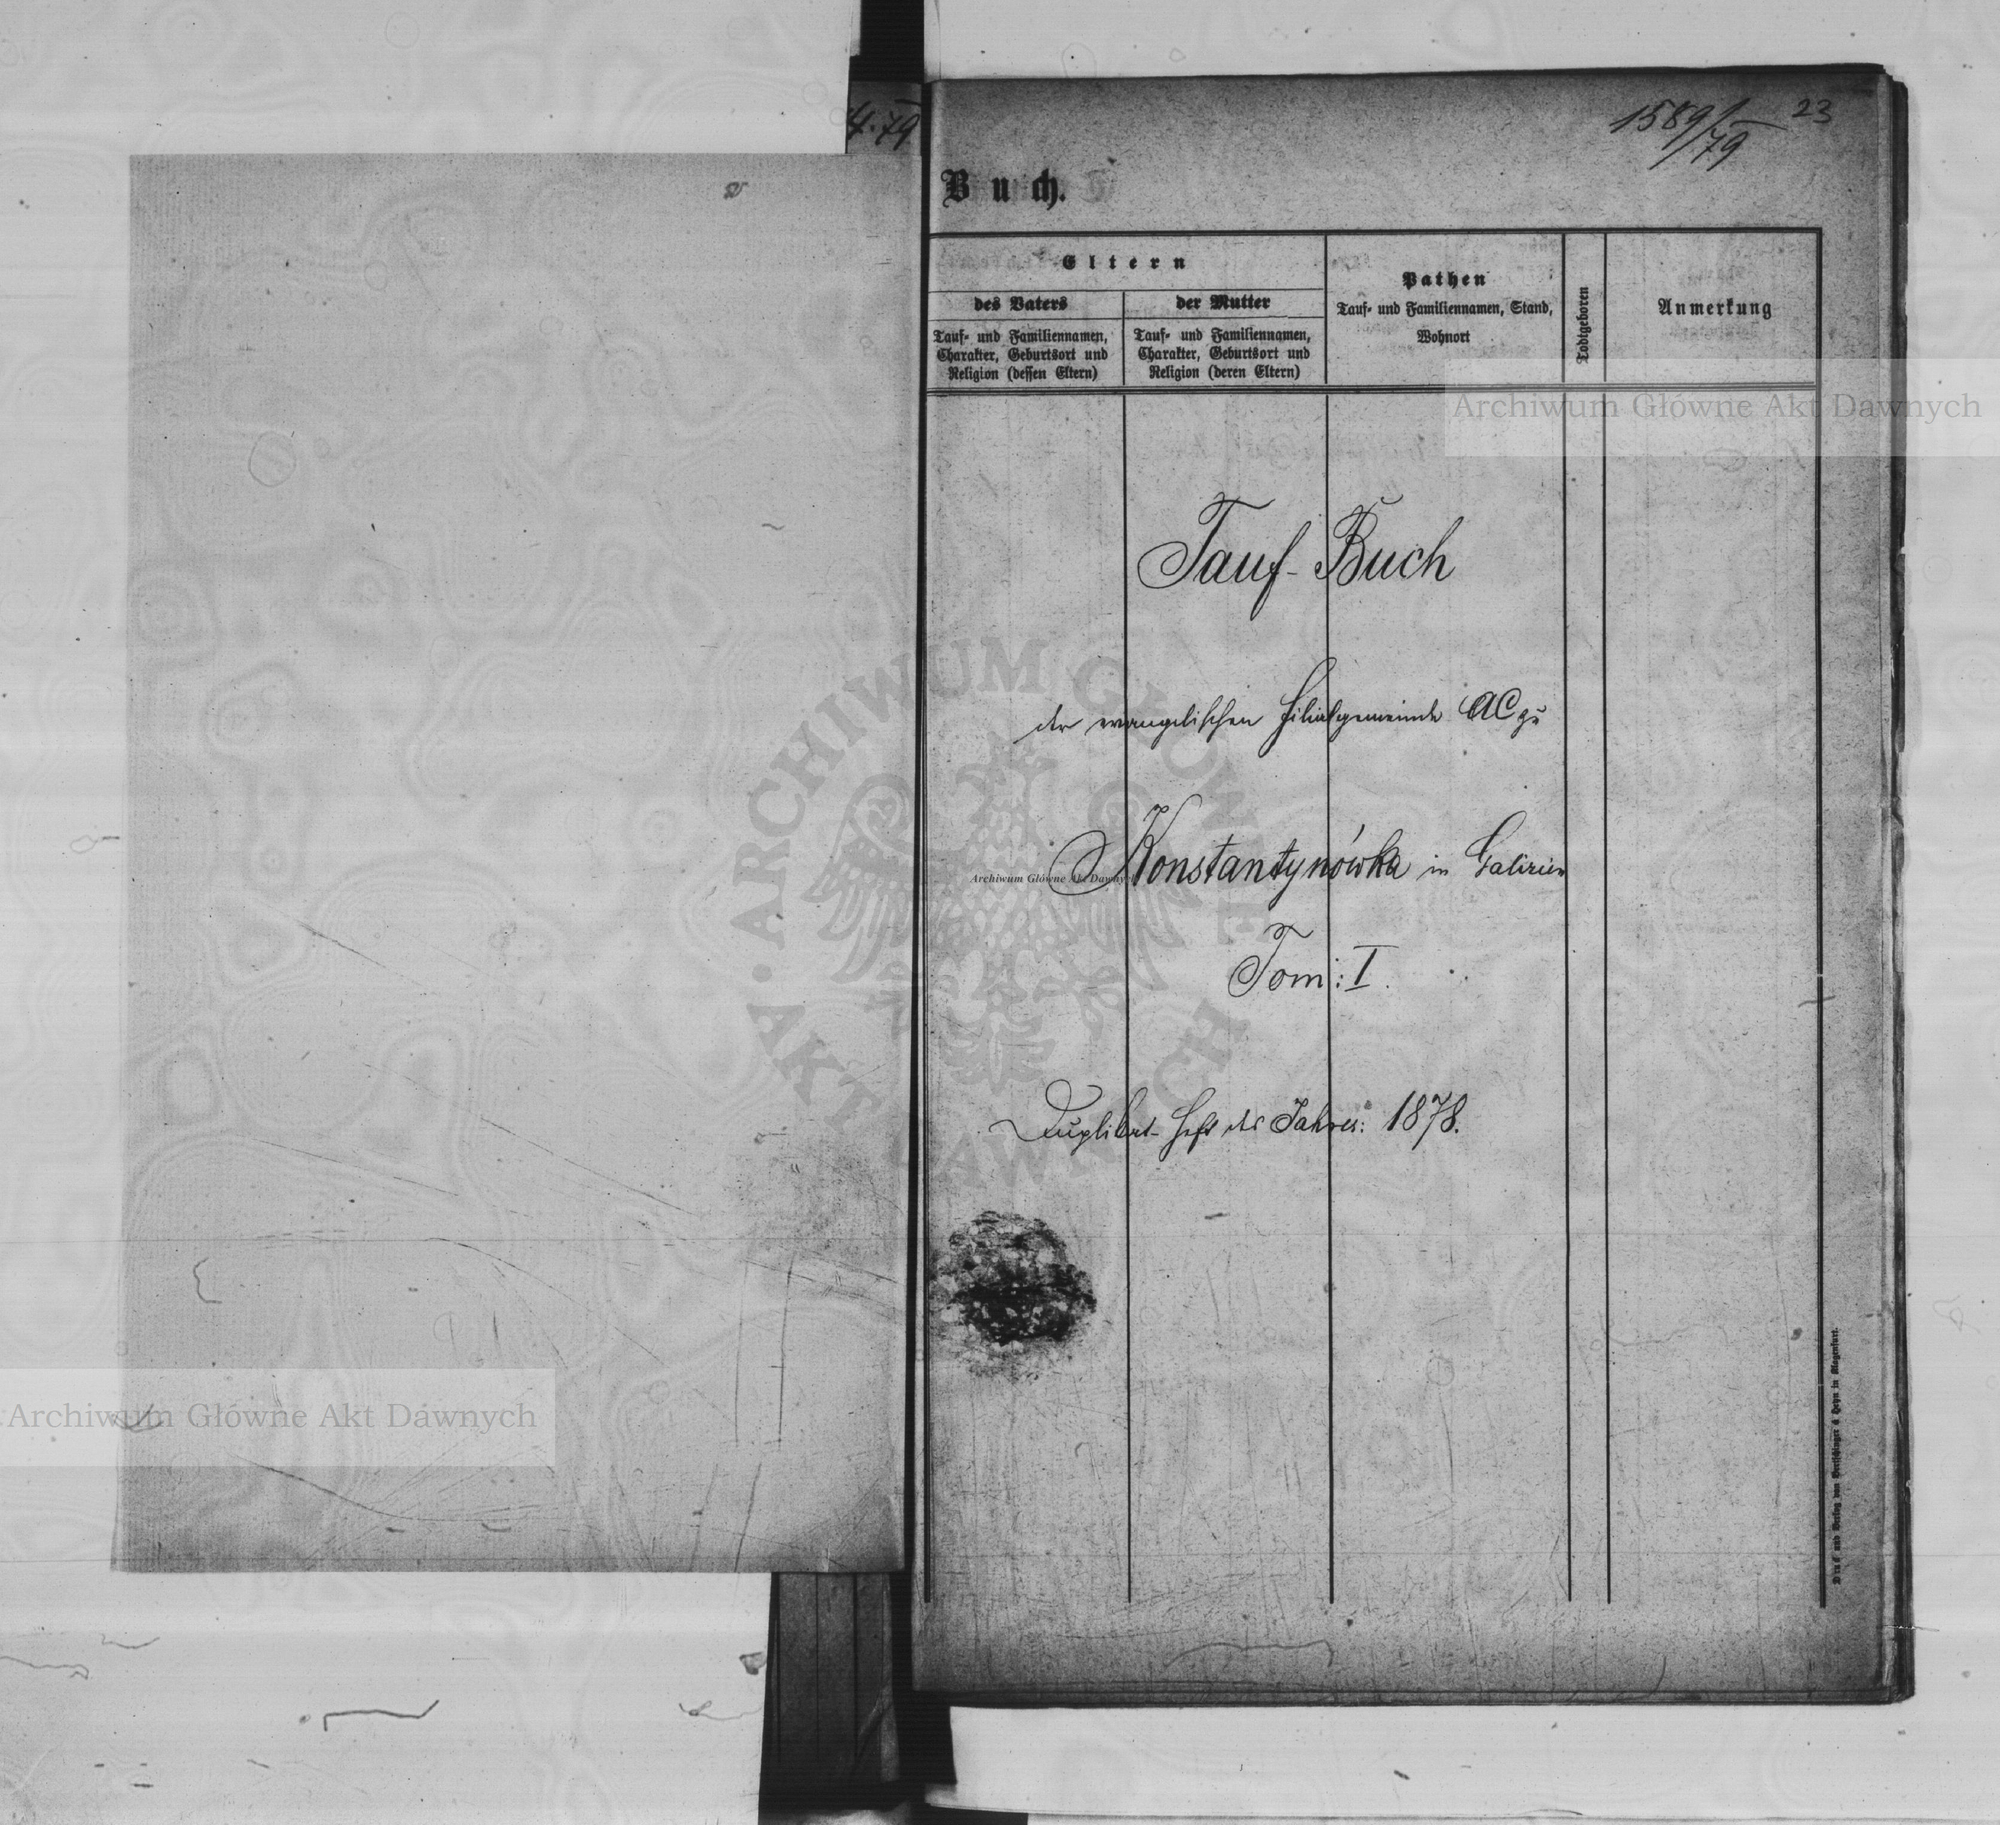 4.79
1589/79
23
Buch.
Eltern
des Vaters
der Mutter
Tauf- und Familiennamen,
Charakter, Geburtsort und
Religion (dessen Eltern)
Tauf- und Familiennamen,
Charakter, Geburtsort und
Religion (deren Eltern)
Pathen
Tauf- und Familiennamen, Stand,
Wohnort
Todtgeboren
Anmerkung
Archiwum Główne Akt Dawnych
Tauf-Buch
der evangelischen Filialgemeinde AC zu
Konstantynówka in Galizien
Archiwum Główne Akt Dawny
Tom: I.
Duplikat-Heft des Jahres: 1878.
ARCHIWUM GŁÓWNE
AKT DAWNYCH
Archiwum Główne Akt Dawnych
Druck und Verlag von Bertschinger & Heyn in Klagenfurt.